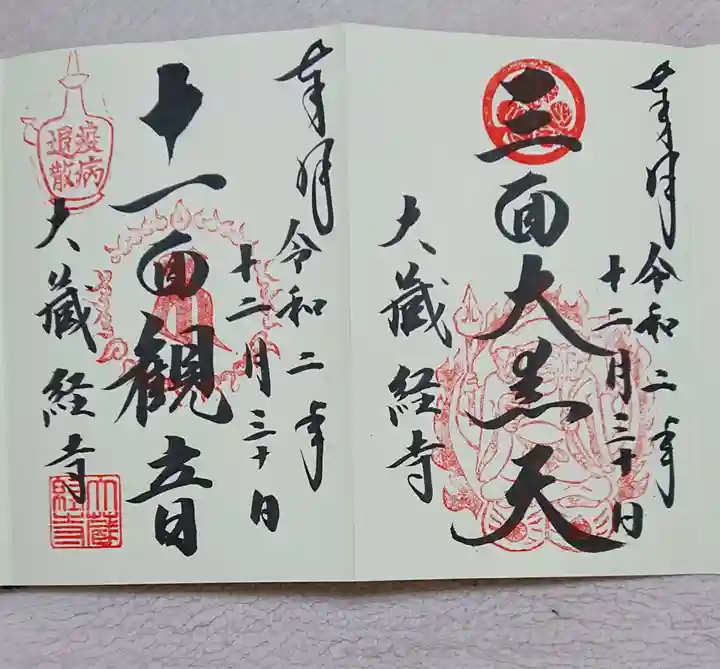 奉拝
令和二年
十二月三十日
三面大黒天
大蔵経寺
奉拝
令和二年
十二月三十日
十一面観音
疫病
退散
大蔵経寺
大蔵
経寺